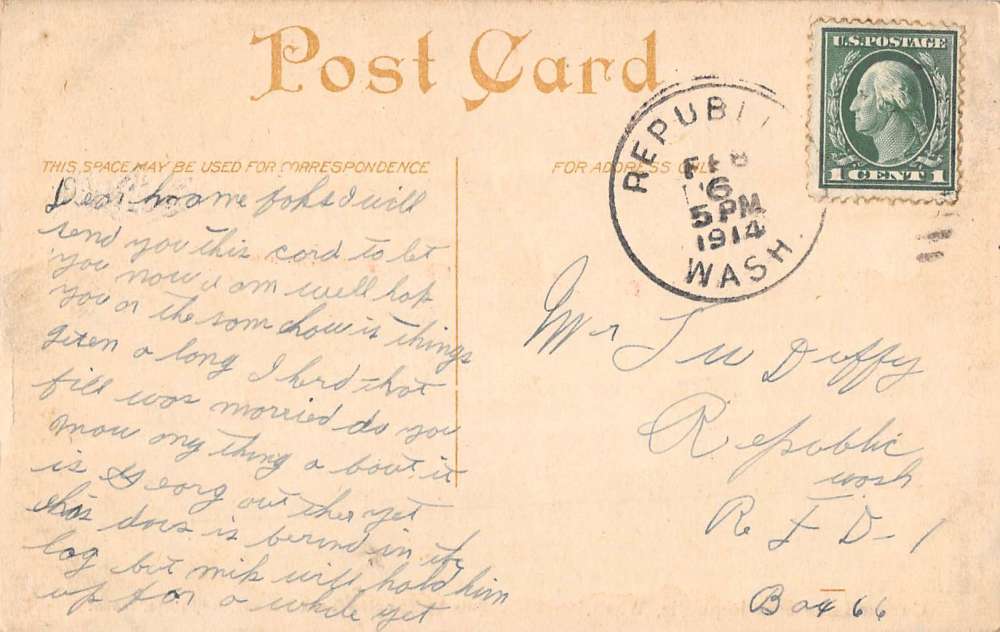 Post Card
U.S. POSTAGE
1 CENT 1
REPUBLI
FEB
6
5 PM
1914
WASH.
THIS SPACE MAY BE USED FOR CORRESPONDENCE
FOR ADDRESS ONLY
Dear home foks I will
send you this card to let
you now I am well hop
you or the som how is things
geten a long I herd that
bill was married do you
now any thing a bout it
is Georg out ther yet
this dars is berind in the
log but mik will hold him
up for a while yet
Mr L W Duffy
Republic
wash
R F D-1
Box 66